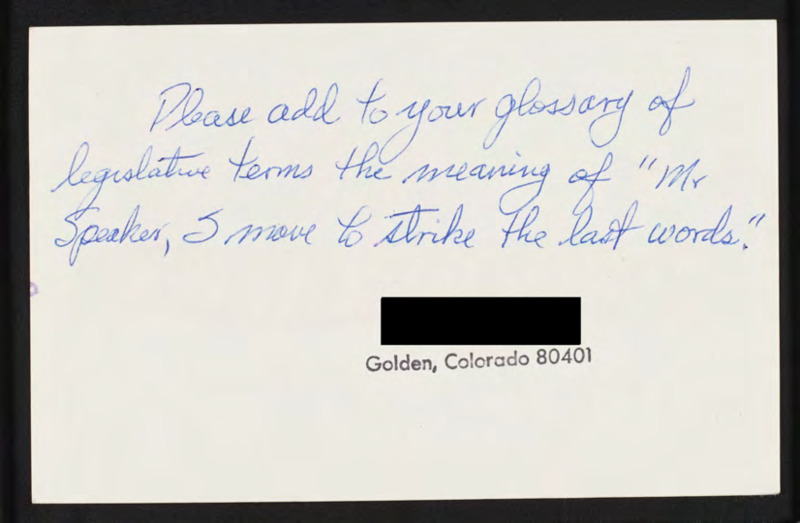 Please add to your glossary of
legislative terms the meaning of "Mr
Speaker, I move to strike the last words."
Golden, Colorado 80401